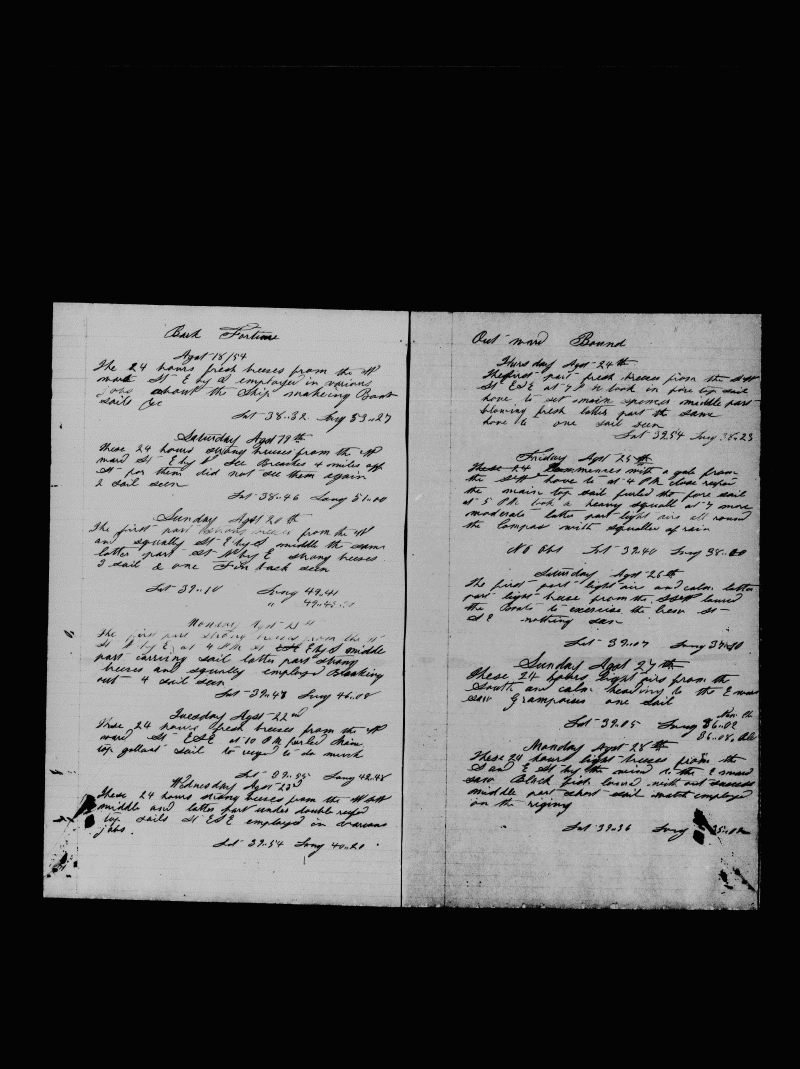 Bark Fortune
Agst 18/54
The 24 hours fresh breeses from the W
ward St E by S employed in various
jobs about the Ship makeing Boat
sails &c
Lat 38..32 Long 53..27
Saturday Agst 19th
These 24 hours strong breeses from the W
ward St E by S See Breches 4 miles off
St for them did not see them again
2 sail seen
Lat 38..46 Long 51..00
Sunday Agst 20th
The first part strong breeses from the W
and squally St E by S middle the same
latter part St by E strong breeses
3 sail & one Fin back seen
Lat 39..10 Long 49.41
" 49..45
Monday Agst 21st
The first part strong breeses from the W
St E by S at 4 P.M. St E by S middle
part carrying sail latter part strong
breeses and squally employed Breaking
out 4 sail seen
Lat 39..48 Long 46..08
Tuesday Agst 22nd
These 24 hours fresh breeses from the W
ward St ESE at 10 P.M. furled Main
top gallant sail to ruged to do much
Lat 39..55 Long 42.48
Wednesday Agst 23d
These 24 hours strong breeses from the WSW
middle and latter part under double reefed
top sails St ESE employed in various
jobs.
Lat 39..54 Long 40..20
Out ward Bound
Thursday Agst 24th
The first part fresh breeses from the SW
St ESE at 7 P.M. took in fore top sail
hove to set main spencer middle part
blowing fresh latter part the same
hove to one sail seen
Lat 39.54 Long 38.23
Friday Agst 25th
These 24 Commences with a gale from
the SW hove to at 4 P.M. close reefed
the main top sail furled the fore sail
at 5 P.M. took a heavy squall at 7 more
moderate latter part light airs all round
the Compas with squalles of rain
No Obs Lat 39.40 Long 38..00
Saturday Agst 26th
The first part light air and calm latter
part light breese from the SSW lowred
the Boats to exercise the Crew St
SE nothing seen
Lat 39..07 Long 37.10
Sunday Agst 27th
These 24 hours light airs from the
South and calm heading to the E ward
saw Grampuses one sail
Lat 39.05 Long 36..02
36..08
Monday Agst 28th
These 24 hours light breeses from the
S and E St by the wind to the E ward
saw Black fish lowred with out success
middle part short sail watch employed
on the riging
Lat 39..36 Long 35..02